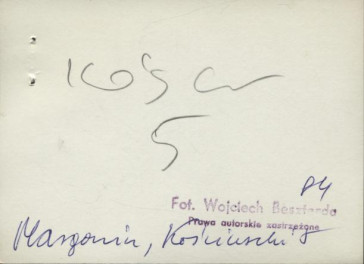 Kość
5
84
Fot. Wojciech Beszterda
Prawa autorskie zastrzeżone
Margonin, Kościuszki 5